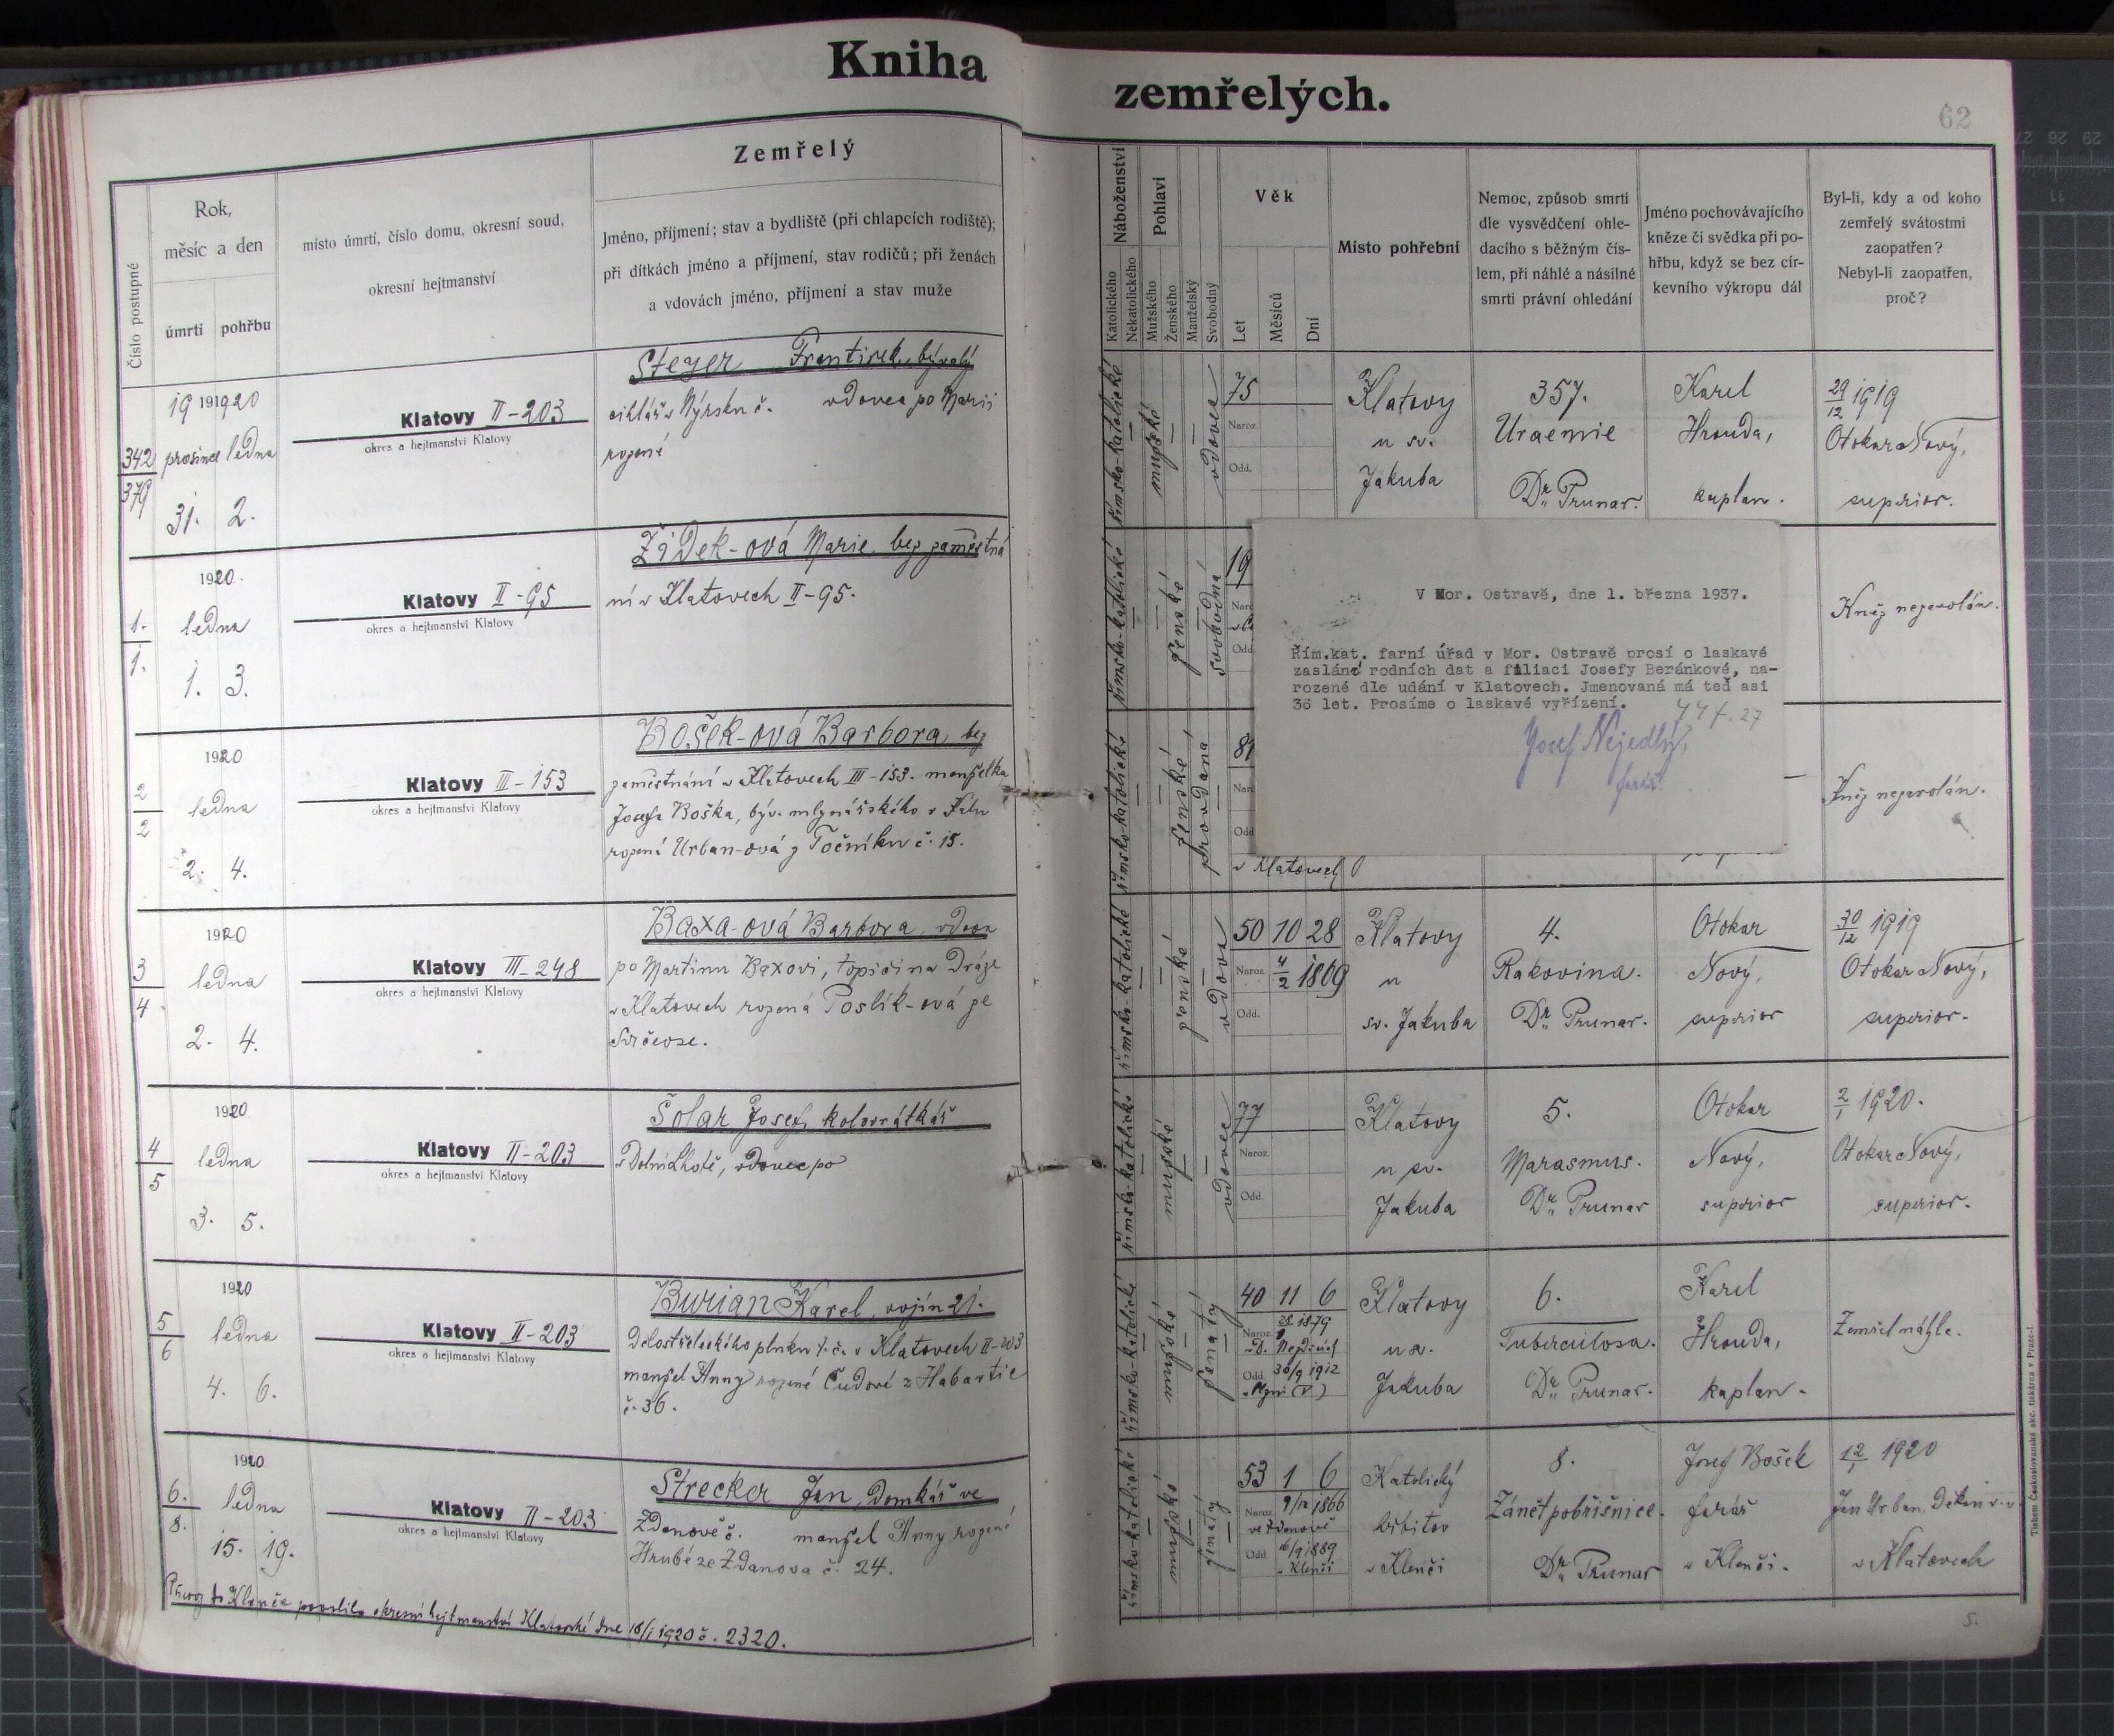 Kniha zemřelých.
62
Číslo postupné
Rok,
měsíc a den
úmrtí
pohřbu
místo úmrtí, číslo domu, okresní soud,
okresní hejtmanství
Zemřelý
Jméno, příjmení; stav a bydliště (při chlapcích rodiště);
při dítkách jméno a příjmení, stav rodičů; při ženách
a vdovách jméno, příjmení a stav muže
Náboženství
Katolického
Nekatolického
Pohlaví
Mužského
Ženského
Manželský
Svobodný
Věk
Let
Měsíců
Dní
Místo pohřební
Nemoc, způsob smrti
dle vysvědčení ohle-
dacího s běžným čís-
lem, při náhlé a násilné
smrti právní ohledání
Jméno pochovávajícího
kněze či svědka při po-
hřbu, když se bez cír-
kevního výkropu dál
Byl-li, kdy a od koho
zemřelý svátostmi
zaopatřen?
Nebyl-li zaopatřen,
proč?
342
379
19 1920
prosince ledna
31. 2.
Klatovy II-203
okres a hejtmanství Klatovy
Steger František, bývalý
cihlář v Nýrsku č. vdovec po Marii
rozené
římsko-katolické
mužské
vdovec
75
Naroz.
Odd.
Klatovy
u sv.
Jakuba
357.
Uraemie
Dr. Prunar.
Karel
Hrouda,
kaplan.
29/12 1919
Otokar Nový,
superior.
1.
1.
1920.
ledna
1. 3.
Klatovy II-95
okres a hejtmanství Klatovy
Židek-ová Marie, bez zaměstná
ní v Klatovech II-95.
římsko-katolické
ženské
svobodná
19
Kněz nezavolán.
V Mor. Ostravě, dne 1. března 1937.
Řím.kat. farní úřad v Mor. Ostravě prosí o laskavé
zasláné rodních dat a filiaci Josefy Beránkové, na-
rozené dle udání v Klatovech. Jmenovaná má teď asi
36 let. Prosíme o laskavé vyřízení.
Josef Nejedlý,
farář.
2
2
1920
ledna
2. 4.
Klatovy III-153
okres a hejtmanství Klatovy
Bošek-ová Barbora, bez
zaměstnání v Klatovech III-153. manželka
Josefa Boška, býv. mlynářského v
rozená Urban-ová z Točníku č. 15.
římsko-katolické
ženské
provdaná
v Klatovech
Kněz nezavolán.
3
4
1920
ledna
2. 4.
Klatovy III-248
okres a hejtmanství Klatovy
Baxa-ová Barbora, vdova
po Martinu Baxovi, topiči na Dráze
v Klatovech rozená Poslík-ová ze
římsko-katolické
ženské
vdova
50 10 28
Naroz. 4/2 1869
Odd.
Klatovy
u
sv. Jakuba
4.
Rakovina.
Dr. Prunar.
Otokar
Nový,
superior
30/12 1919
Otokar Nový,
superior.
4
5
1920
ledna
3. 5.
Klatovy II-203
okres a hejtmanství Klatovy
Šolar Josef, kolovrátkář
v Dolní Lhotě, vdovec po
římsko-katolické
mužské
vdovec
77
Naroz.
Odd.
Klatovy
u sv.
Jakuba
5.
Marasmus.
Dr. Prunar
Otokar
Nový,
superior
2/1 1920.
Otokar Nový,
superior.
5
6
1920
ledna
4. 6.
Klatovy II-203
okres a hejtmanství Klatovy
Burian Karel, vojín 21.
Dělostřeleckého pluku t. č. v Klatovech II-203
manžel Anny rozené Čudové z Habartic
č. 36.
římsko-katolické
mužské
ženatý
40 11 6
Naroz. 1879
Odd. 30/9 1912
Klatovy
u sv.
Jakuba
6.
Tuberculosa.
Dr. Prunar.
Karel
Hrouda,
kaplan.
Zemřel náhle.
6.
8.
1920
ledna
15. 19.
Klatovy II-203
okres a hejtmanství Klatovy
Strecker Jan, Domkář ve
Ždanově č. manžel Anny rozené
Hrubé ze Ždanova č. 24.
římsko-katolické
mužské
ženatý
53 1 6
Naroz. 9/12 1866
ve Ždanově
Odd. 16/9 1889
v Klenčí
Katolický
hřbitov
v Klenčí
8.
Zánět pobřišnice.
Dr. Prunar
Josef Bošek
farář
v Klenčí.
12/1 1920
Jan Urban. Děkan
v Klatovech
Převoz do Klenče povolilo okresní hejtmanství Klatovské dne 16/1 1920 č. 2320.
Tiskem Československá akc. tiskárna v Praze-I.
5.